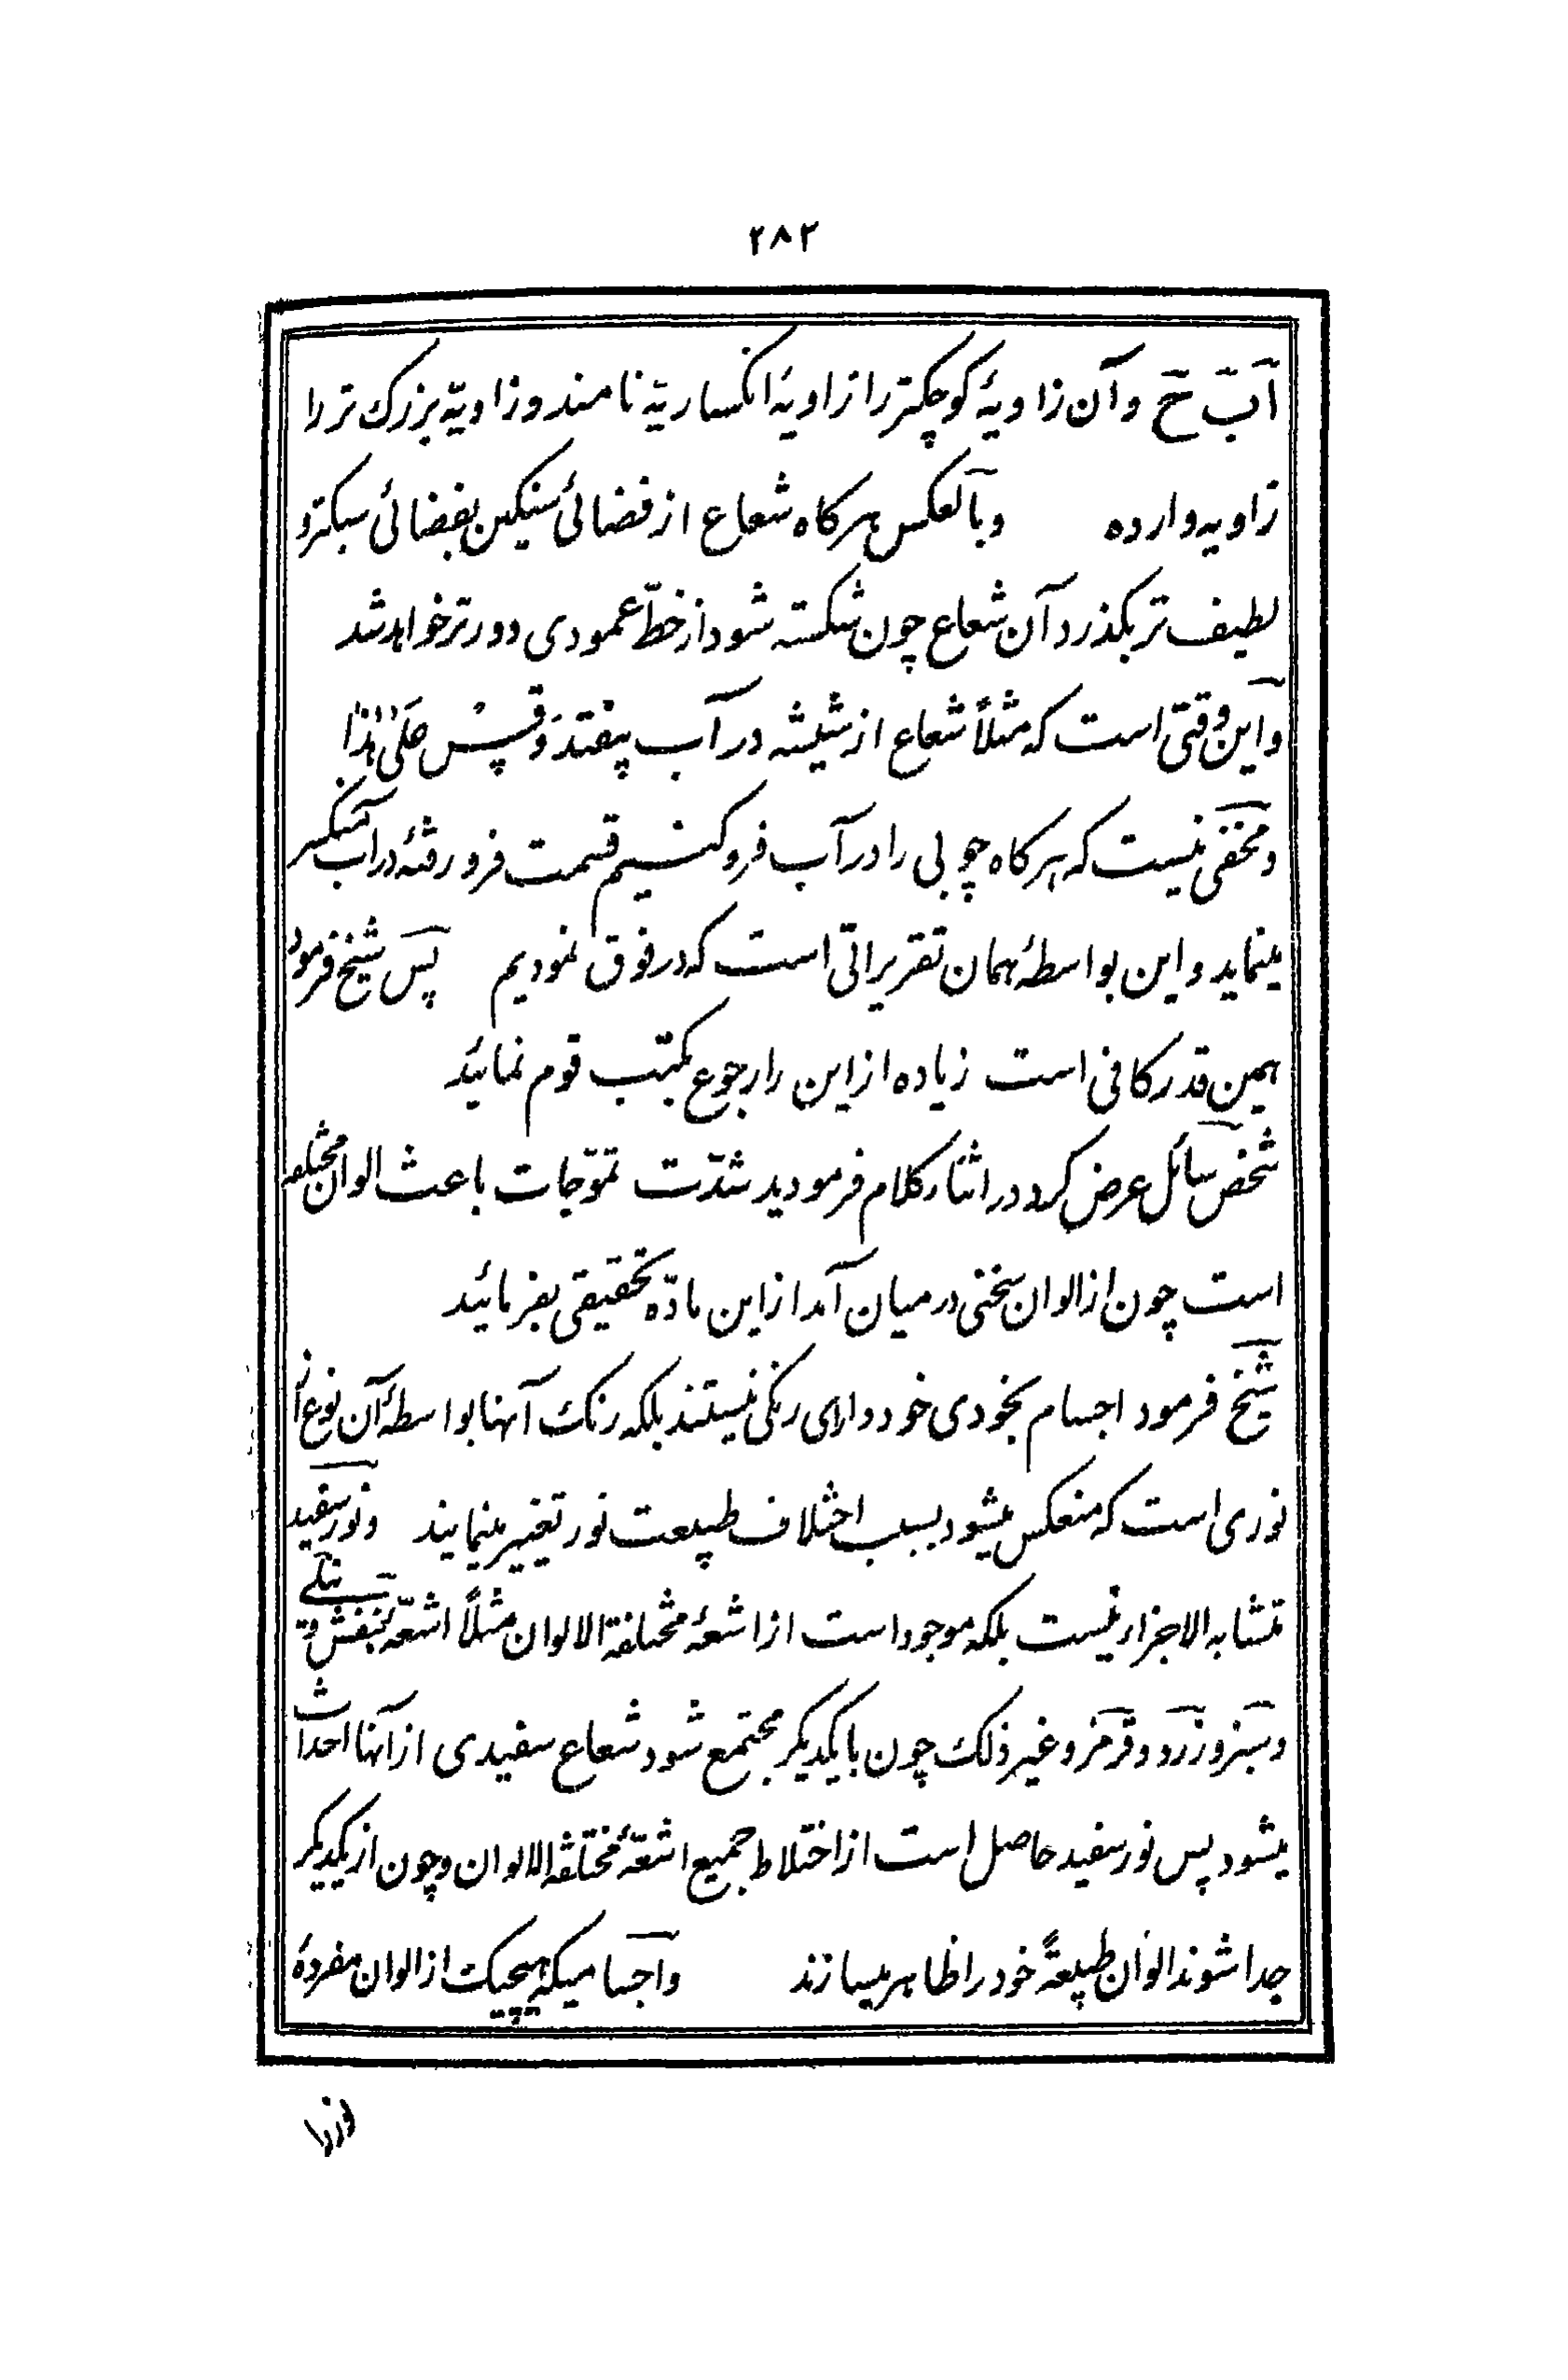 ۲۸۲
آ ب ح وآن زاویهٔ کوچکتر را زاویهٔ انکساریّه نامند و زاویّه بزرک تر را
زاویه وارده وبالعکس هرکاه شعاع از فضائی سنکین بفضائی سبکتر و
لطیف تر بکذرد آن شعاع چون شکسته شود از خطّ عمودی دورتر خواهد شد
واین وقتی است که مثلاً شعاع از شیشه در آب بیفتد وَقِسْ عَلیٰ هٰذا
ومخفی نیست که هرکاه چوبی را در آب فرو کنیم قسمت فرو رفتهٔ در آب منکسر
مینماید و این بواسطهٔ همان تقریراتی است که در فوق نمودیم پس شیخ فرمود
همین قدر کافی است زیاده از این را رجوع بکتب قوم نمائید
شخص سائل عرض کرد در اثناء کلام فرمودید شدّت تموّجات باعث الوان مختلفه
است چون از الوان سخنی در میان آمد از این مادّه تحقیقی بفرمائید
شیخ فرمود اجسام بخودی خود دارای رنکی نیستند بلکه رنک آنها بواسطهٔ آن نوع از
نوری است که منعکس میشود بسبب اختلاف طبیعت نور تغییر مینمایند ونور سفید
متشابه الاجزاء نیست بلکه موجود است از اشعهٔ مختلفة الالوان مثلاً اشعّه بنفش و نیلی
وسبز وزرد وقرمز وغیر ذلک چون با یکدیکر مجتمع شود شعاع سفیدی از آنها احداث
میشود پس نور سفید حاصل است از اختلاط جمیع اشعّهٔ مختلفة الالوان وچون از یکدیکر
جدا شوند الوان طبیعهٔ خود را ظاهر میسازند واجسامیکه هیچیک از الوان مفردهٔ
نور را